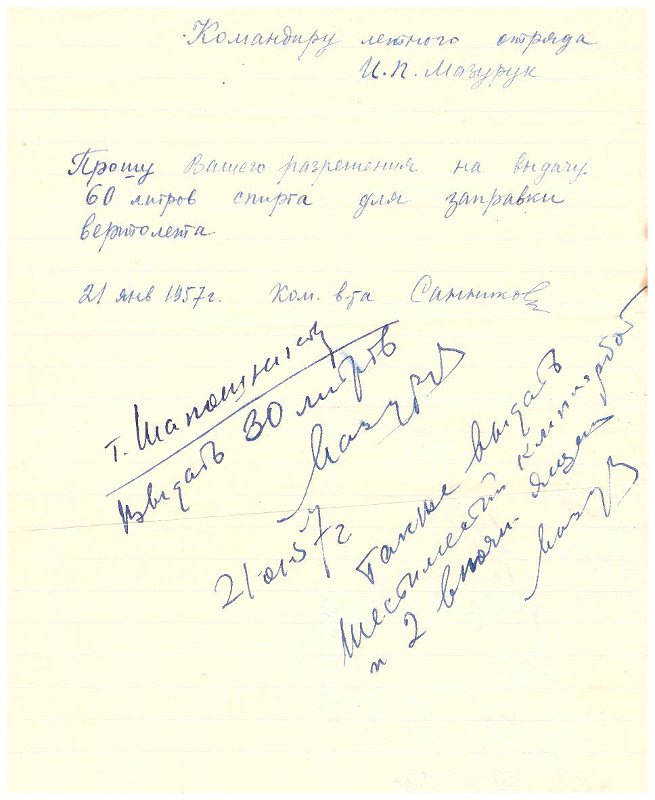 Командиру летного отряда
И.П. Мазурук
Прошу Вашего разрешения на выдачу
60 литров спирта для заправки
вертолета
21 янв 1957г. Ком. в-та Санников
т. Шапошников
Выдать 30 литров
Мазурук
21.01.57 г
Также выдать
шестиместн
и 2 ящ
Мазурук